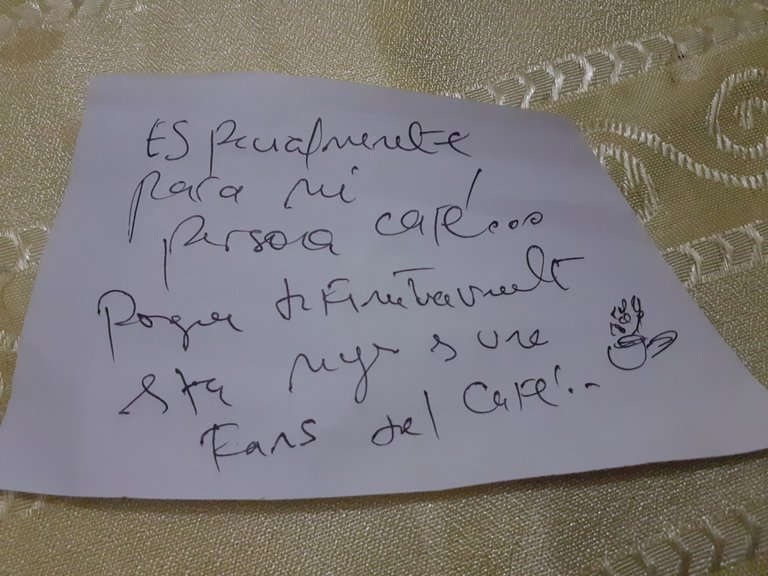 Especialmente
para mi
persona café...
Porque definitivamente
esta mujer es una
Fans del café...